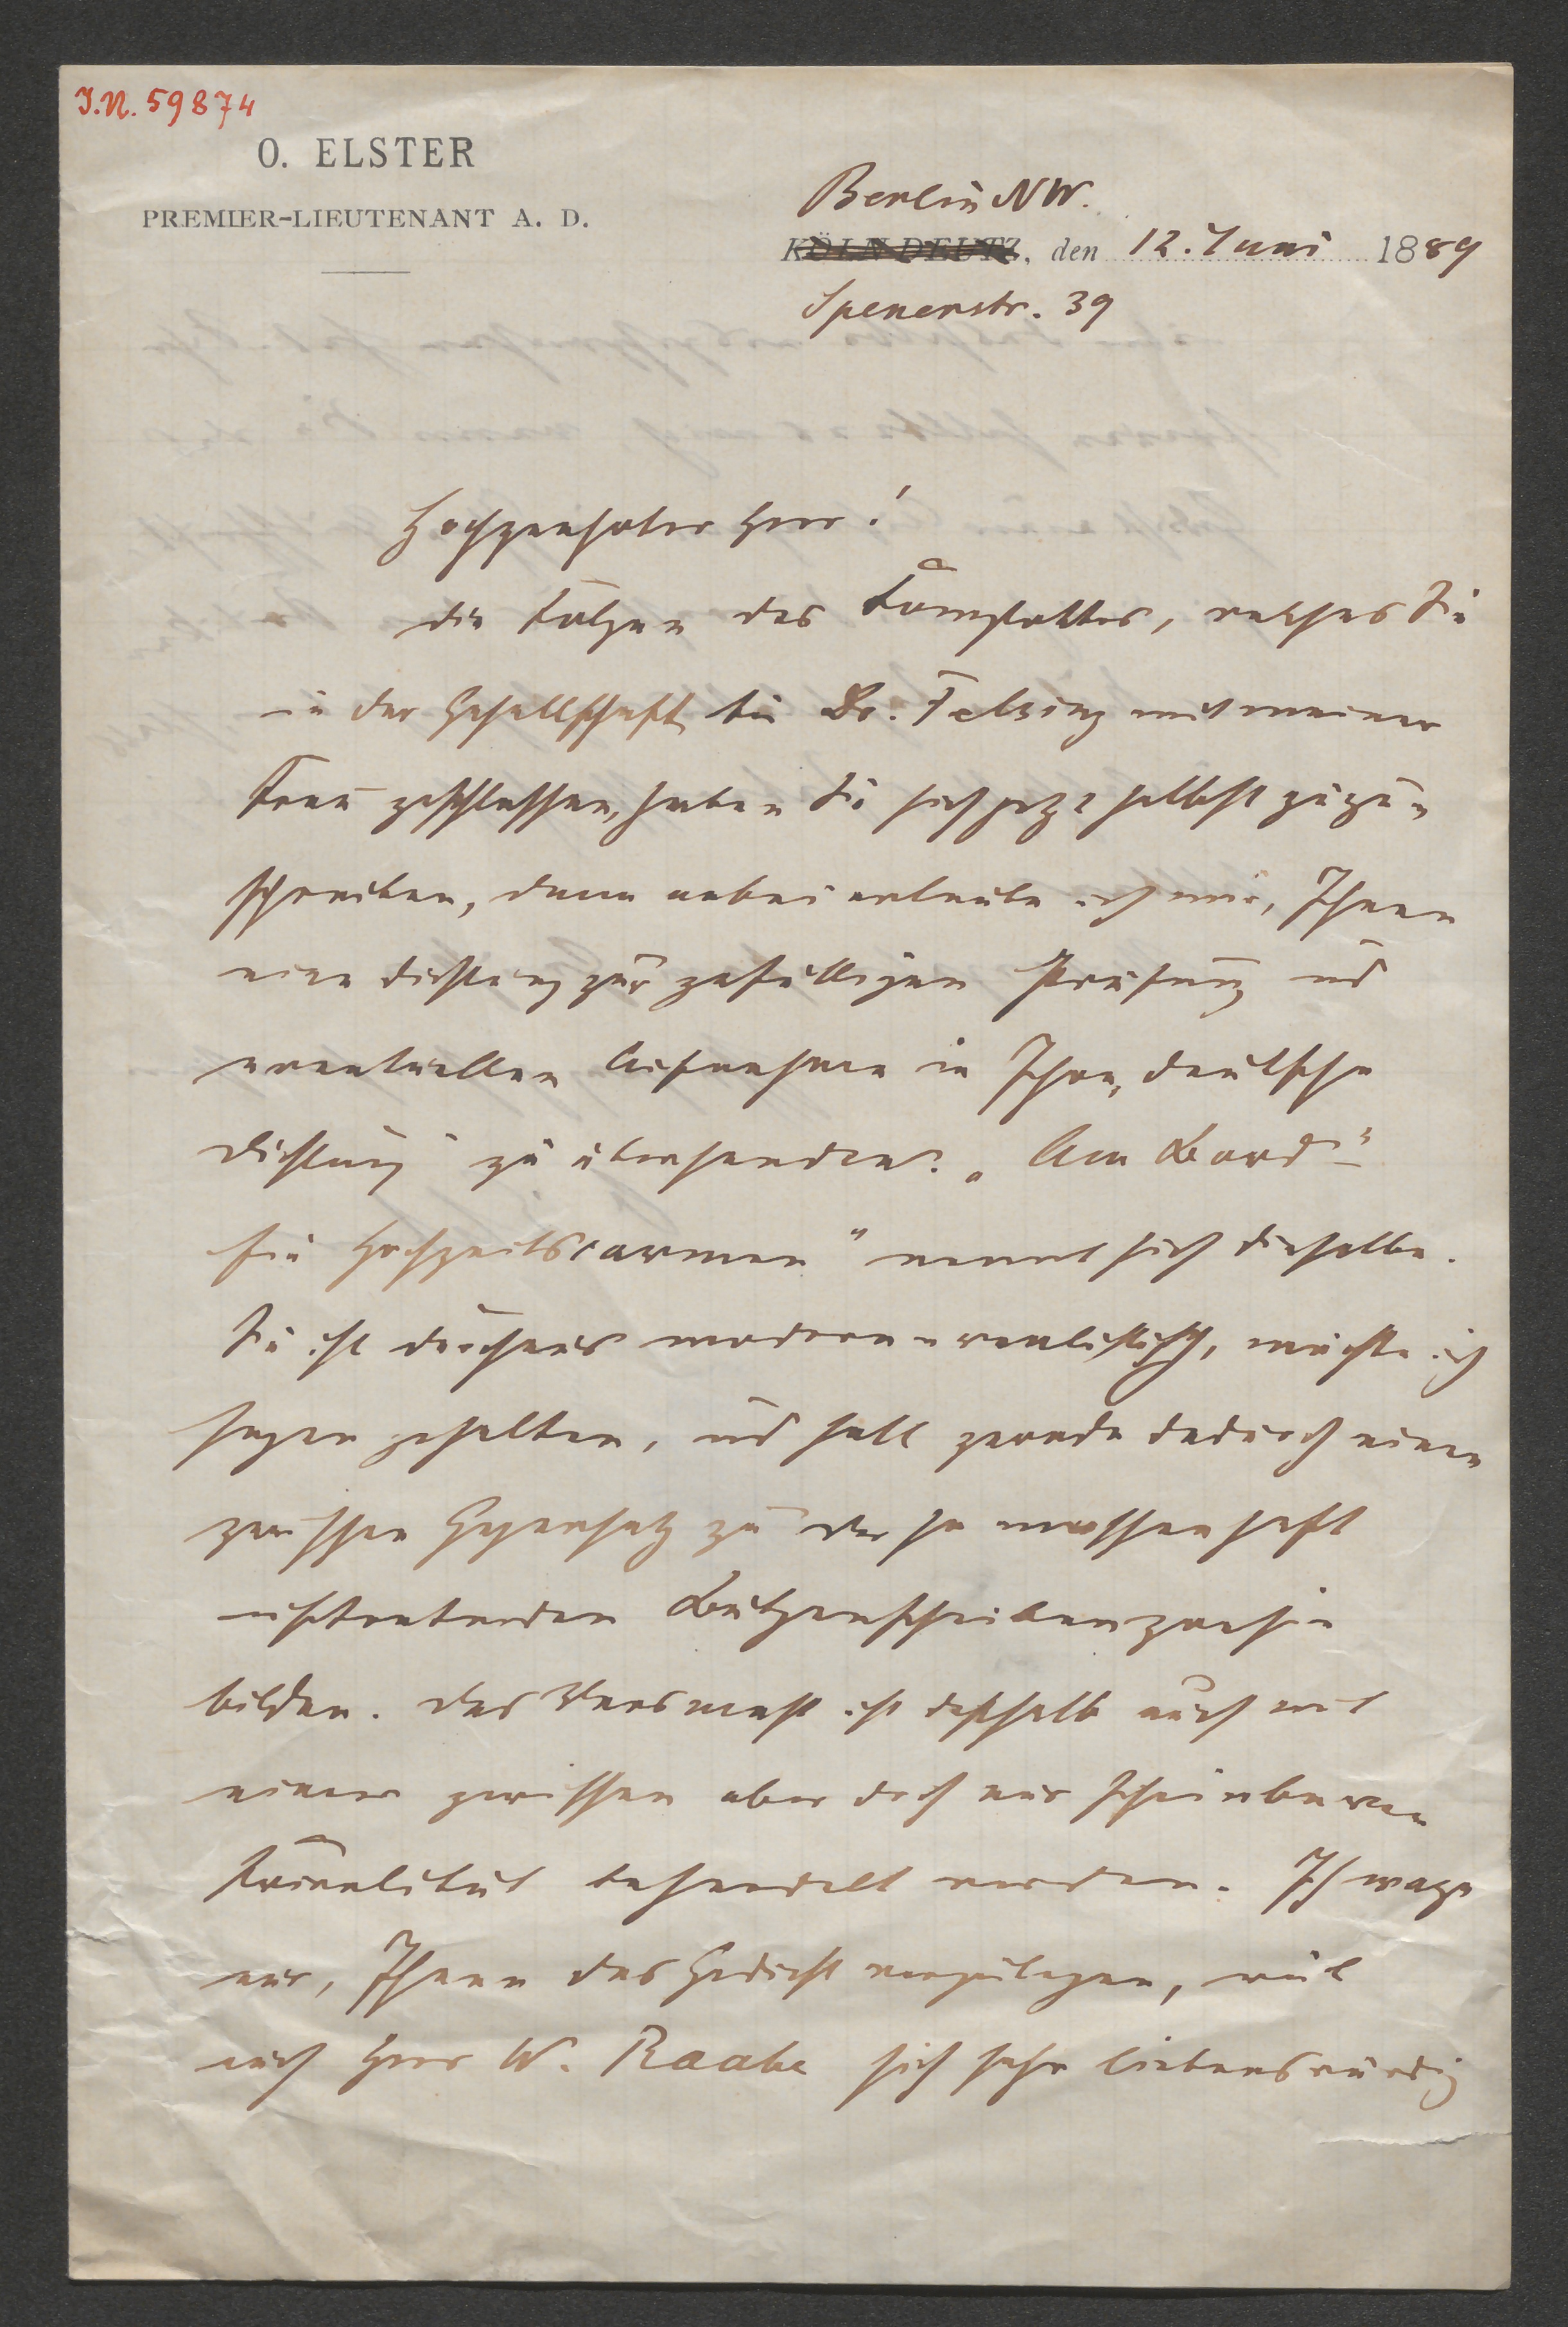 I.N. 59874
O. ELSTER
PREMIER-LIEUTENANT A. D.
Berlin NW.
KÖLN-DEUTZ, den 12. Juni 1889
Spenerstr. 39
Hochgeehrter Herr!
Die Folgen des Kampfes, welches Sie
in der Gesellschaft bei Dr. Felsing mit meiner
Frau geschlossen, haben Sie sich jetzt selbst zuzu-
schreiben, denn anbei erlaube ich mir, Ihnen
eine Dichtung zur gefälligen Prüfung und
eventuellen Aufnahme in Ihre „Deutsche
Dichtung" zu übersenden. „Am Bord –
Ein Hochzeitscarmen" nennt sich dieselbe.
Sie ist durchaus modern-realistisch, möchte ich
sagen gehalten, und soll gerade dadurch einen
gewissen Gegensatz zu der so massenhaft
auftretenden Butzenscheibenpoesie
bilden. Das Versmaß ist deßhalb auch mit
einer gewissen aber doch nur scheinbaren
Trivialität behandelt worden. Ich wage
nur, Ihnen das Gedicht vorzulegen, weil
auch Herr W. Raabe sich sehr liebenswürdig